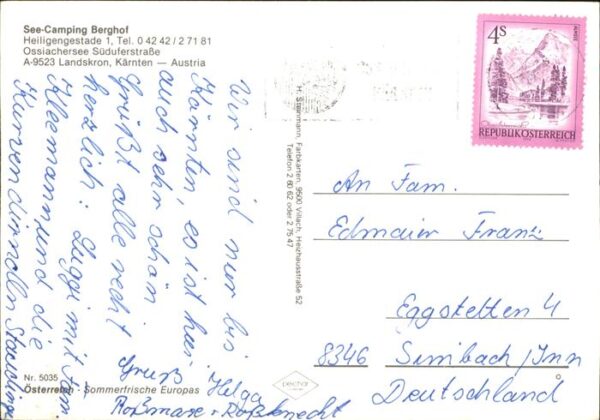 See-Camping Berghof
Heiligengestade 1, Tel. 0 42 42 / 2 71 81
Ossiachersee Süduferstraße
A-9523 Landskron, Kärnten — Austria
4S
ALMSEE
REPUBLIK ÖSTERREICH
Wir sind nur bis
Kärnten, es ist hier
auch sehr schön
Grüßt alle recht
herzlich: Luggi mit Fam
Kleemann, und die
Gruß Helga
Roßmaxe + Roßknecht
H. Steinmann, Farbkarten, 9500 Villach, Heizhausstraße 52
Telefon 2 60 62 oder 2 75 47
An Fam.
Edmaier Franz
Eggstetten 4
8346 Simbach/Inn
Deutschland
Nr. 5035
Österreich - Sommerfrische Europas
pechar